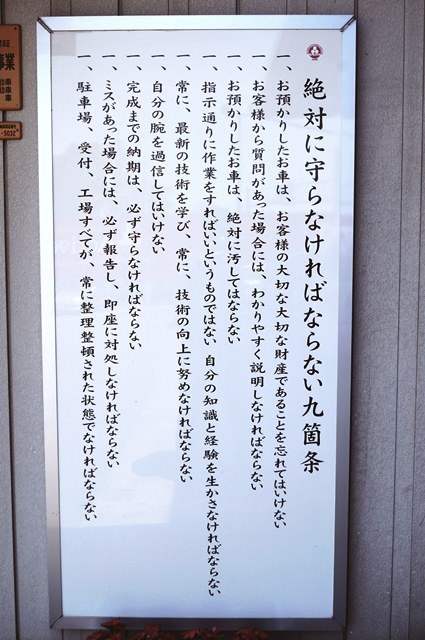 絶対に守らなければならない九箇条
一、お預かりしたお車は、お客様の大切な大切な財産であることを忘れてはいけない
一、お客様から質問があった場合には、わかりやすく説明しなければならない
一、お預かりしたお車は、絶対に汚してはならない
一、指示通りに作業をすればいいというものではない 自分の知識と経験を生かさなければならない
一、常に、最新の技術を学び、常に、技術の向上に努めなければならない
一、自分の腕を過信してはいけない
一、完成までの納期は、必ず守らなければならない
一、ミスがあった場合には、必ず報告し、即座に対処しなければならない
一、駐車場、受付、工場すべてが、常に整理整頓された状態でなければならない